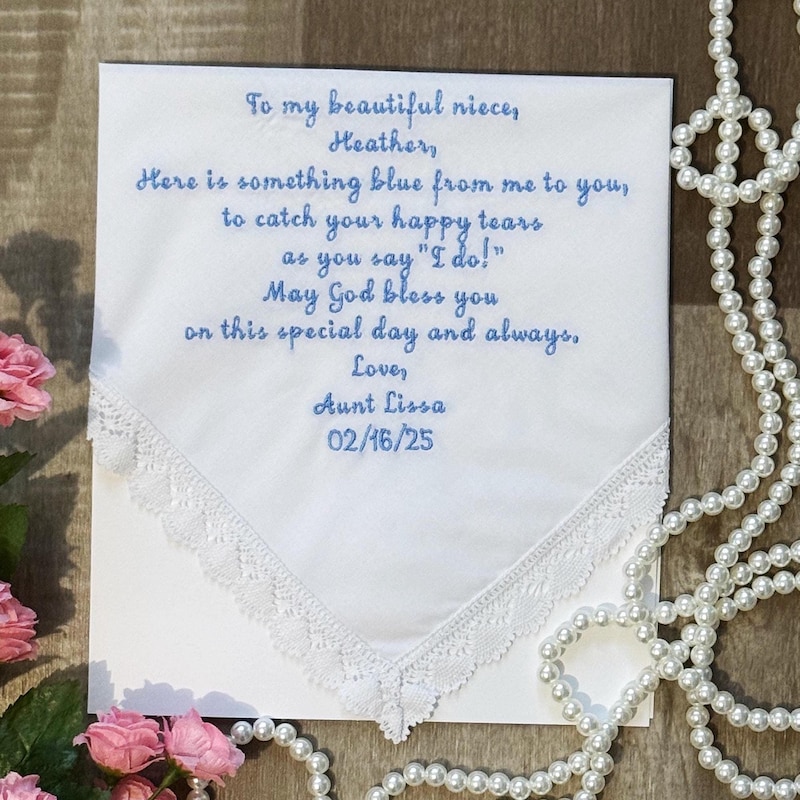 To my beautiful niece,
Heather,
Here is something blue from me to you,
to catch your happy tears
as you say "I do!"
May God bless you
on this special day and always.
Love,
Aunt Lissa
02/16/25